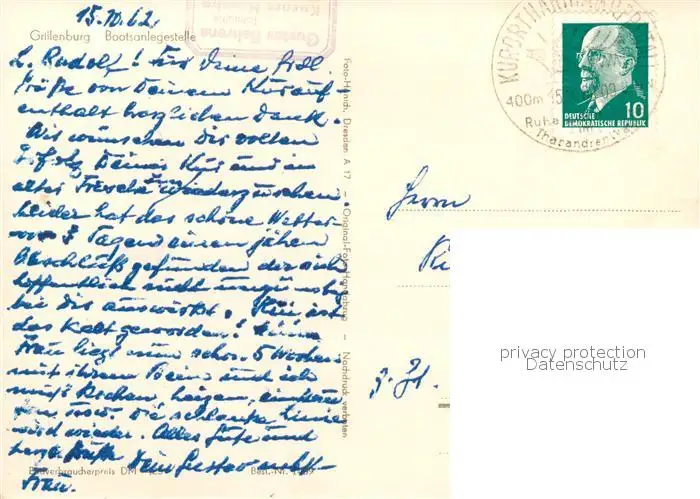 15.10.62.
Grillenburg Bootsanlegestelle
L. Rudolf! Für Deine frdl.
Grüße von Deinem Kurauf-
enthalt herzlichen Dank.
Wir wünschen Dir vollen
Erfolg Deiner Kur und in
alter Frische Dich wiederzusehen
Leider hat das schöne Wetter
vor 3 Tagen einen jähen
Abschluß gefunden der sich
hoffentlich nicht ungünstig
bei Dir auswirkt. Hier ist
das kalt geworden! Meine
Frau liegt nun schon 5 Wochen
mit ihrem Bein und ich
muß kochen, heizen, einholen
usw. die schlanke Linie
wird wieder. Alles Gute und
herzl. Grüße Dein Gustav nebst
Frau.
Endverbraucherpreis DM
Best.-Nr.
Foto-Hänich, Dresden A 17 – Original-Foto-Handabzug – Nachdruck verboten
Gustav Behrens
KURORT HARTHA
400m 15.
Tharandter Wald
DEUTSCHE
DEMOKRATISCHE REPUBLIK
10
Herrn
z. Zt.
privacy protection
Datenschutz